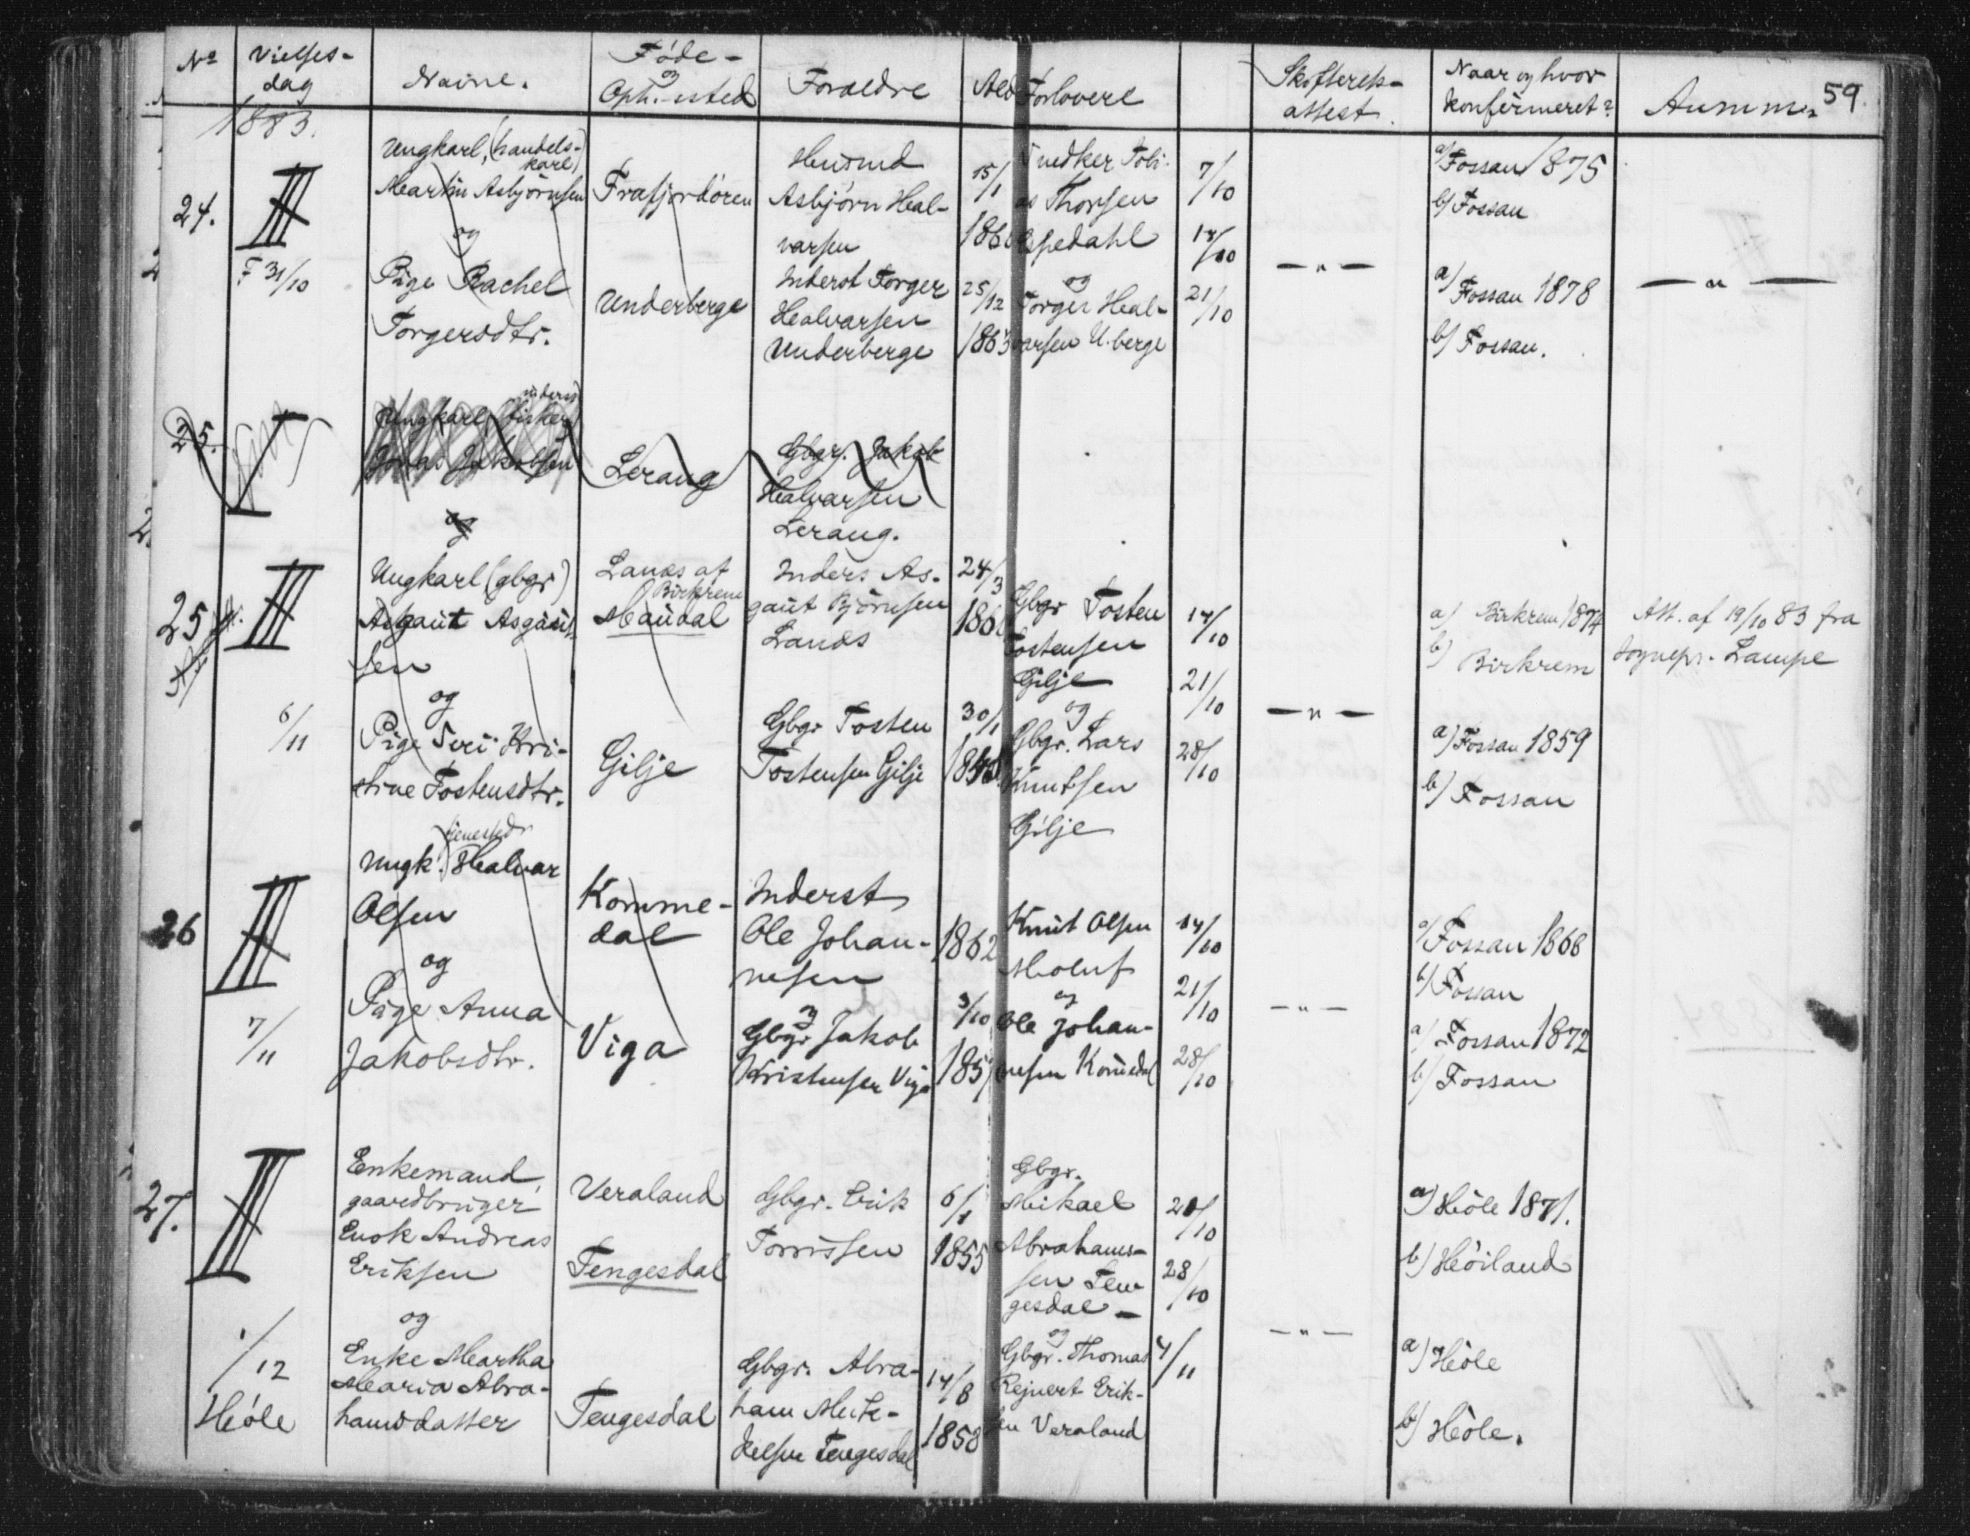 No Vielses-
dag Navne. Føde-
og
Oph.-sted Forældre Ald Forlovere Skifterets-
attest. Naar og hvor
konfirmeret? Anmm. 59.
1883.
24. III
F 31/10
Ungkarl, (handels-
karl)
Martin Asbjørnsen
og
Pige Rachel
Torgersdtr.
Frafjordøren
Underberge
Husmd
Asbjørn Hal-
varsen
Inderst Torger
Halvarsen
Underberge
15/1
186
25/12
1863
Snedker Tobi-
as Thorsen
Espedahl
og
Torger Hal-
varsen U.berge
7/10
14/10
21/10
— " —
a) Fossan 1875
b) Fossan
a) Fossan 1878
b) Fossan.
— " —
25.
Ungkarl, fisker
Jakobsen
og
Lerang
Gbgr. Jakob
Halvarsen
Lerang.
25 III
6/11
Ungkarl (gbgr)
Asgaut Asgaut-
sen
og
Pige Siri Kri-
stine Tostensdtr.
Lanæs af
Birkrem
Maudal
Gilje
Inders As-
gaut Bjørnsen
Lanæs
Gbgr Tosten
Tostensen Gilje
24/3
186
30/1
Gbgr Tosten
Tostensen
Gilje
og
Gbgr. Lars
Knutsen
Gilje
14/10
21/10
28/10
— " —
a) Birkrem 1874
b) Birkrem
a) Fossan 1859
b) Fossan
Att. af 19/10 83 fra
Sognepr. Lampe
26 III
7/11
Ungk. (tjenestedr
Halvar
Olsen
og
Pige Anna
Jakobsdtr.
Komme-
dal
Viga
Inderst
Ole Johan-
nesen
og
Gbgr Jakob
Kristensen Viga
1862
3/10
1857
Knut Olsen
Moluf
og
Ole Johan-
nesen Komedal
14/10
21/10
28/10
— " —
a) Fossan 1868
b) Fossan
a) Fossan 1872
b) Fossan
27. III
1/12
Høle
Enkemand,
gaardbruger
Enok Andreas
Eriksen
og
Enke Martha
Maria Abra-
hamsdatter
Veraland
Tengesdal
Tengesdal
Gbgr. Erik
Torrissen
Gbgr. Abra-
ham Mik-
kelsen Tengesdal
6/1
1855
14/8
1858
Gbgr.
Mikael
Abrahams-
sen Ten-
gesdal —
og
Gbgr. Thomas
Rejnert Erik-
sen Veraland
21/10
28/10
4/11
— " —
a) Høle 1871.
b) Høiland
a) Høle
b) Høle.